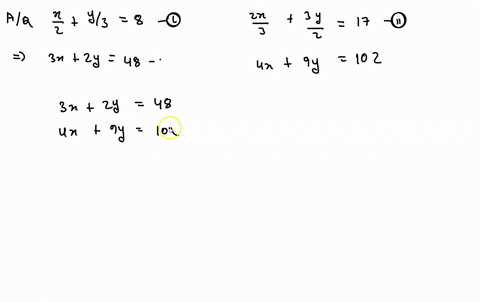 A/Q x/2 + y/3 = 8 - (i) 2x/3 + 3y/2 = 17 - (ii)
=> 3x + 2y = 48 - . 4x + 9y = 102
3x + 2y = 48
4x + 9y = 102